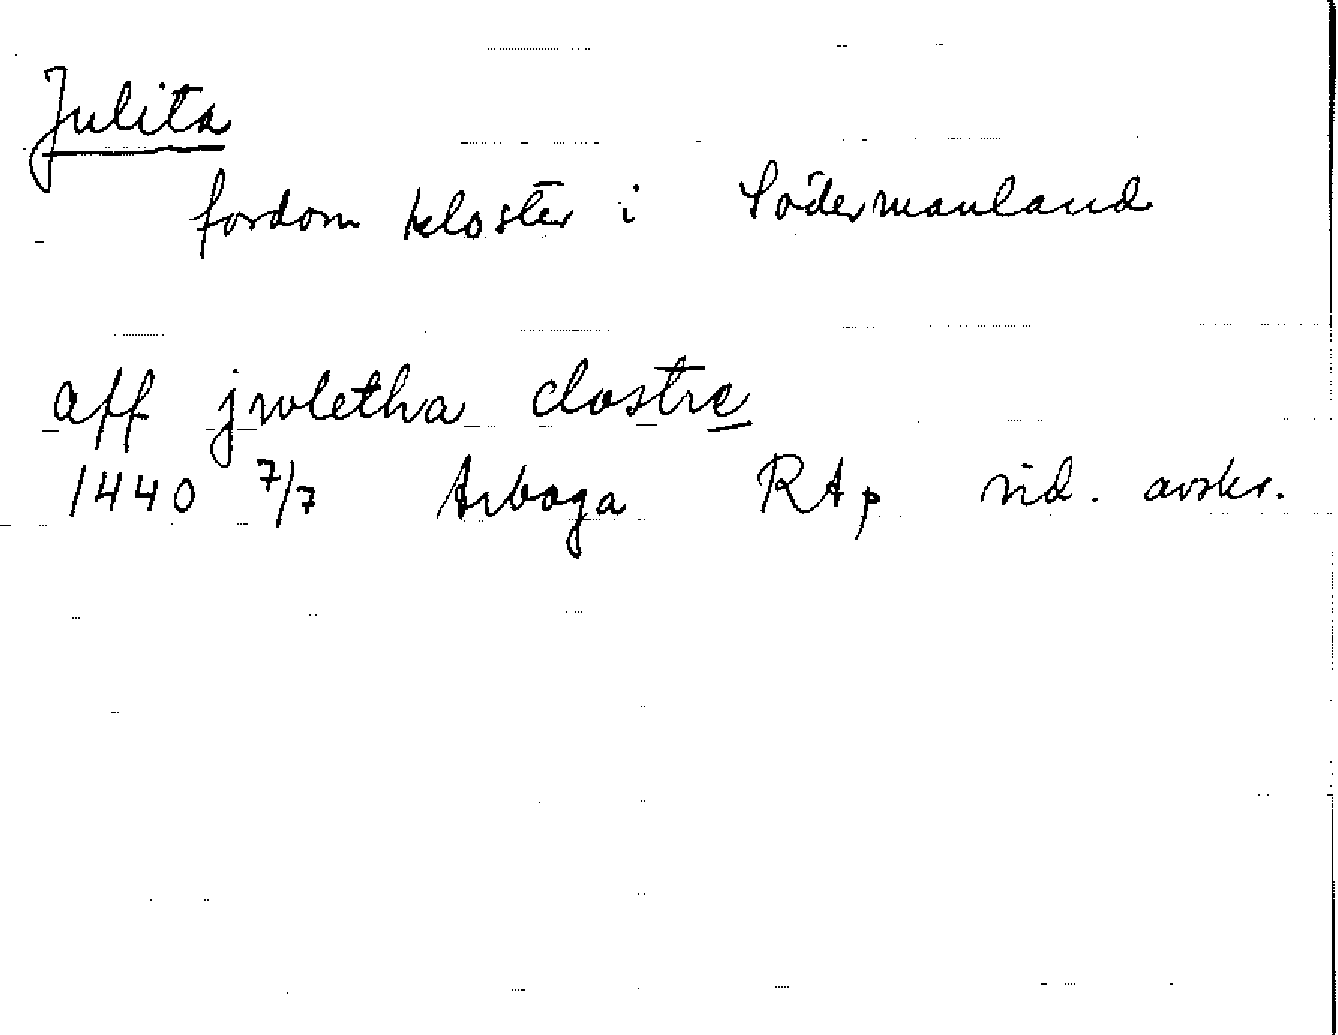 Julita
fordom kloster i Södermanland
aff jwletha clostre
1440 7/7 Arboga RAp vid. avskr.